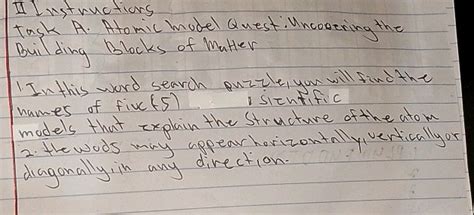 II Instructions
Task A. Atomic Model Quest: Uncovering the
Building Blocks of Matter
1 In this word search puzzle, you will find the
names of five (5) scientific
models that explain the structure of the atom
2. The wods may appear horizontally, vertically or
diagonally, in any direction.